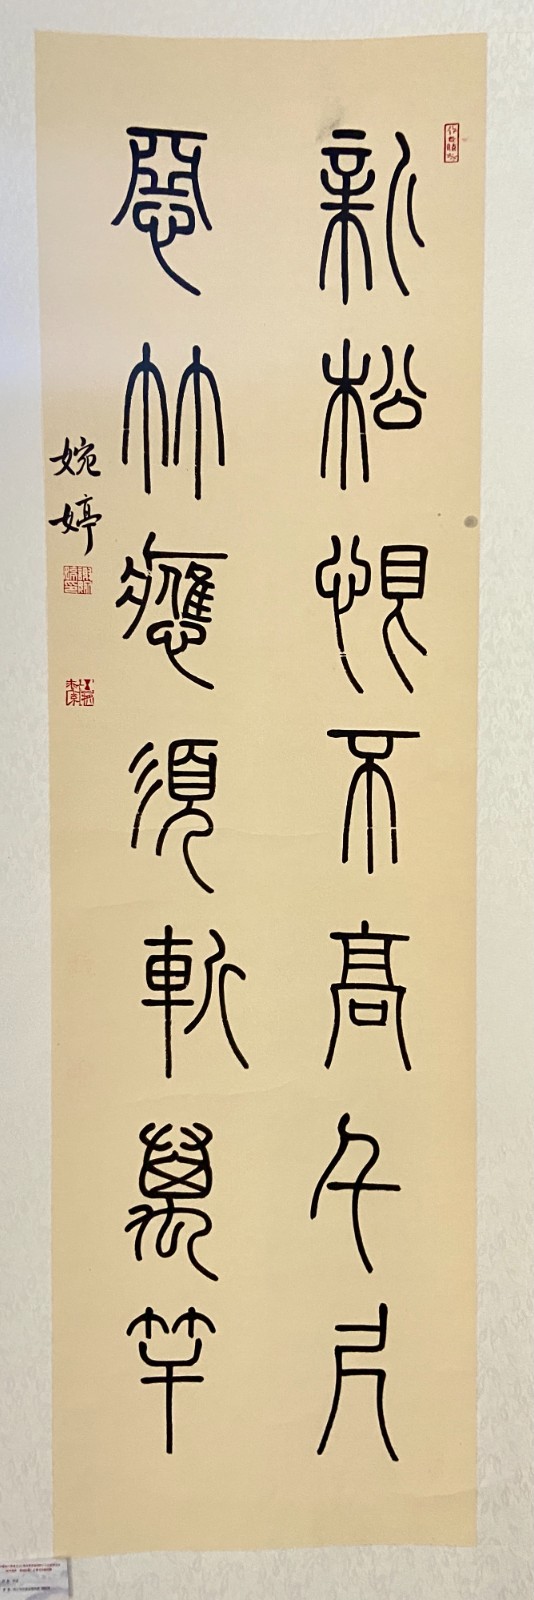 新松恨不高千尺
惡竹應須斬萬竿
婉婷